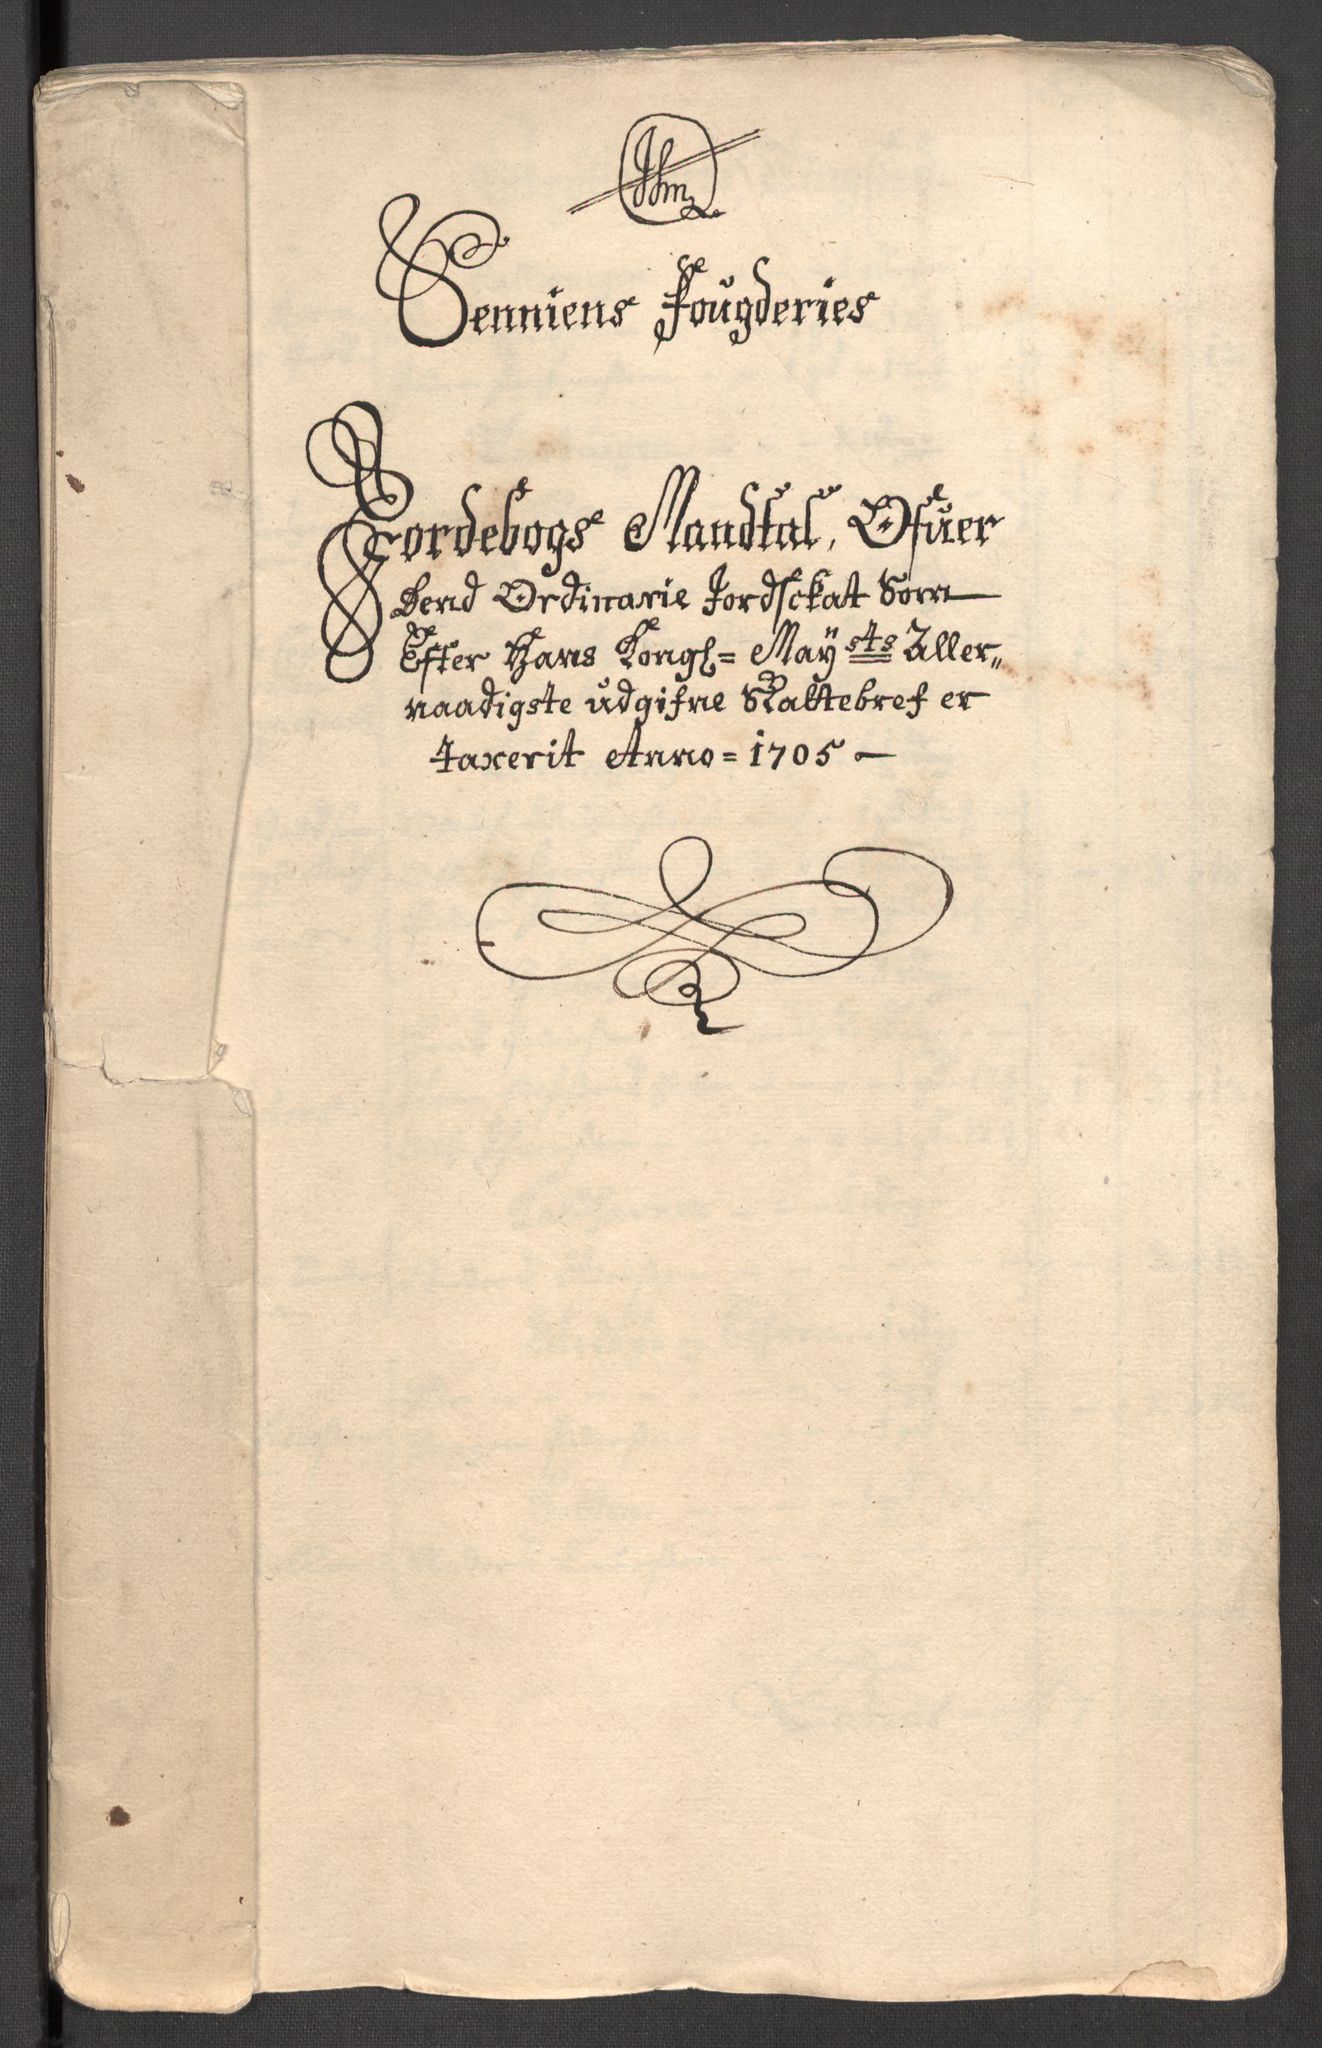 Senniens Fougderies
Jordebogs Mandtal, Ofuer
Dend Ordinarie Jordsckatt Som
Efter Hans Kongl= May sts Aller„
naadigste udgifne Skattebref er
taxerit Anno = 1705 —